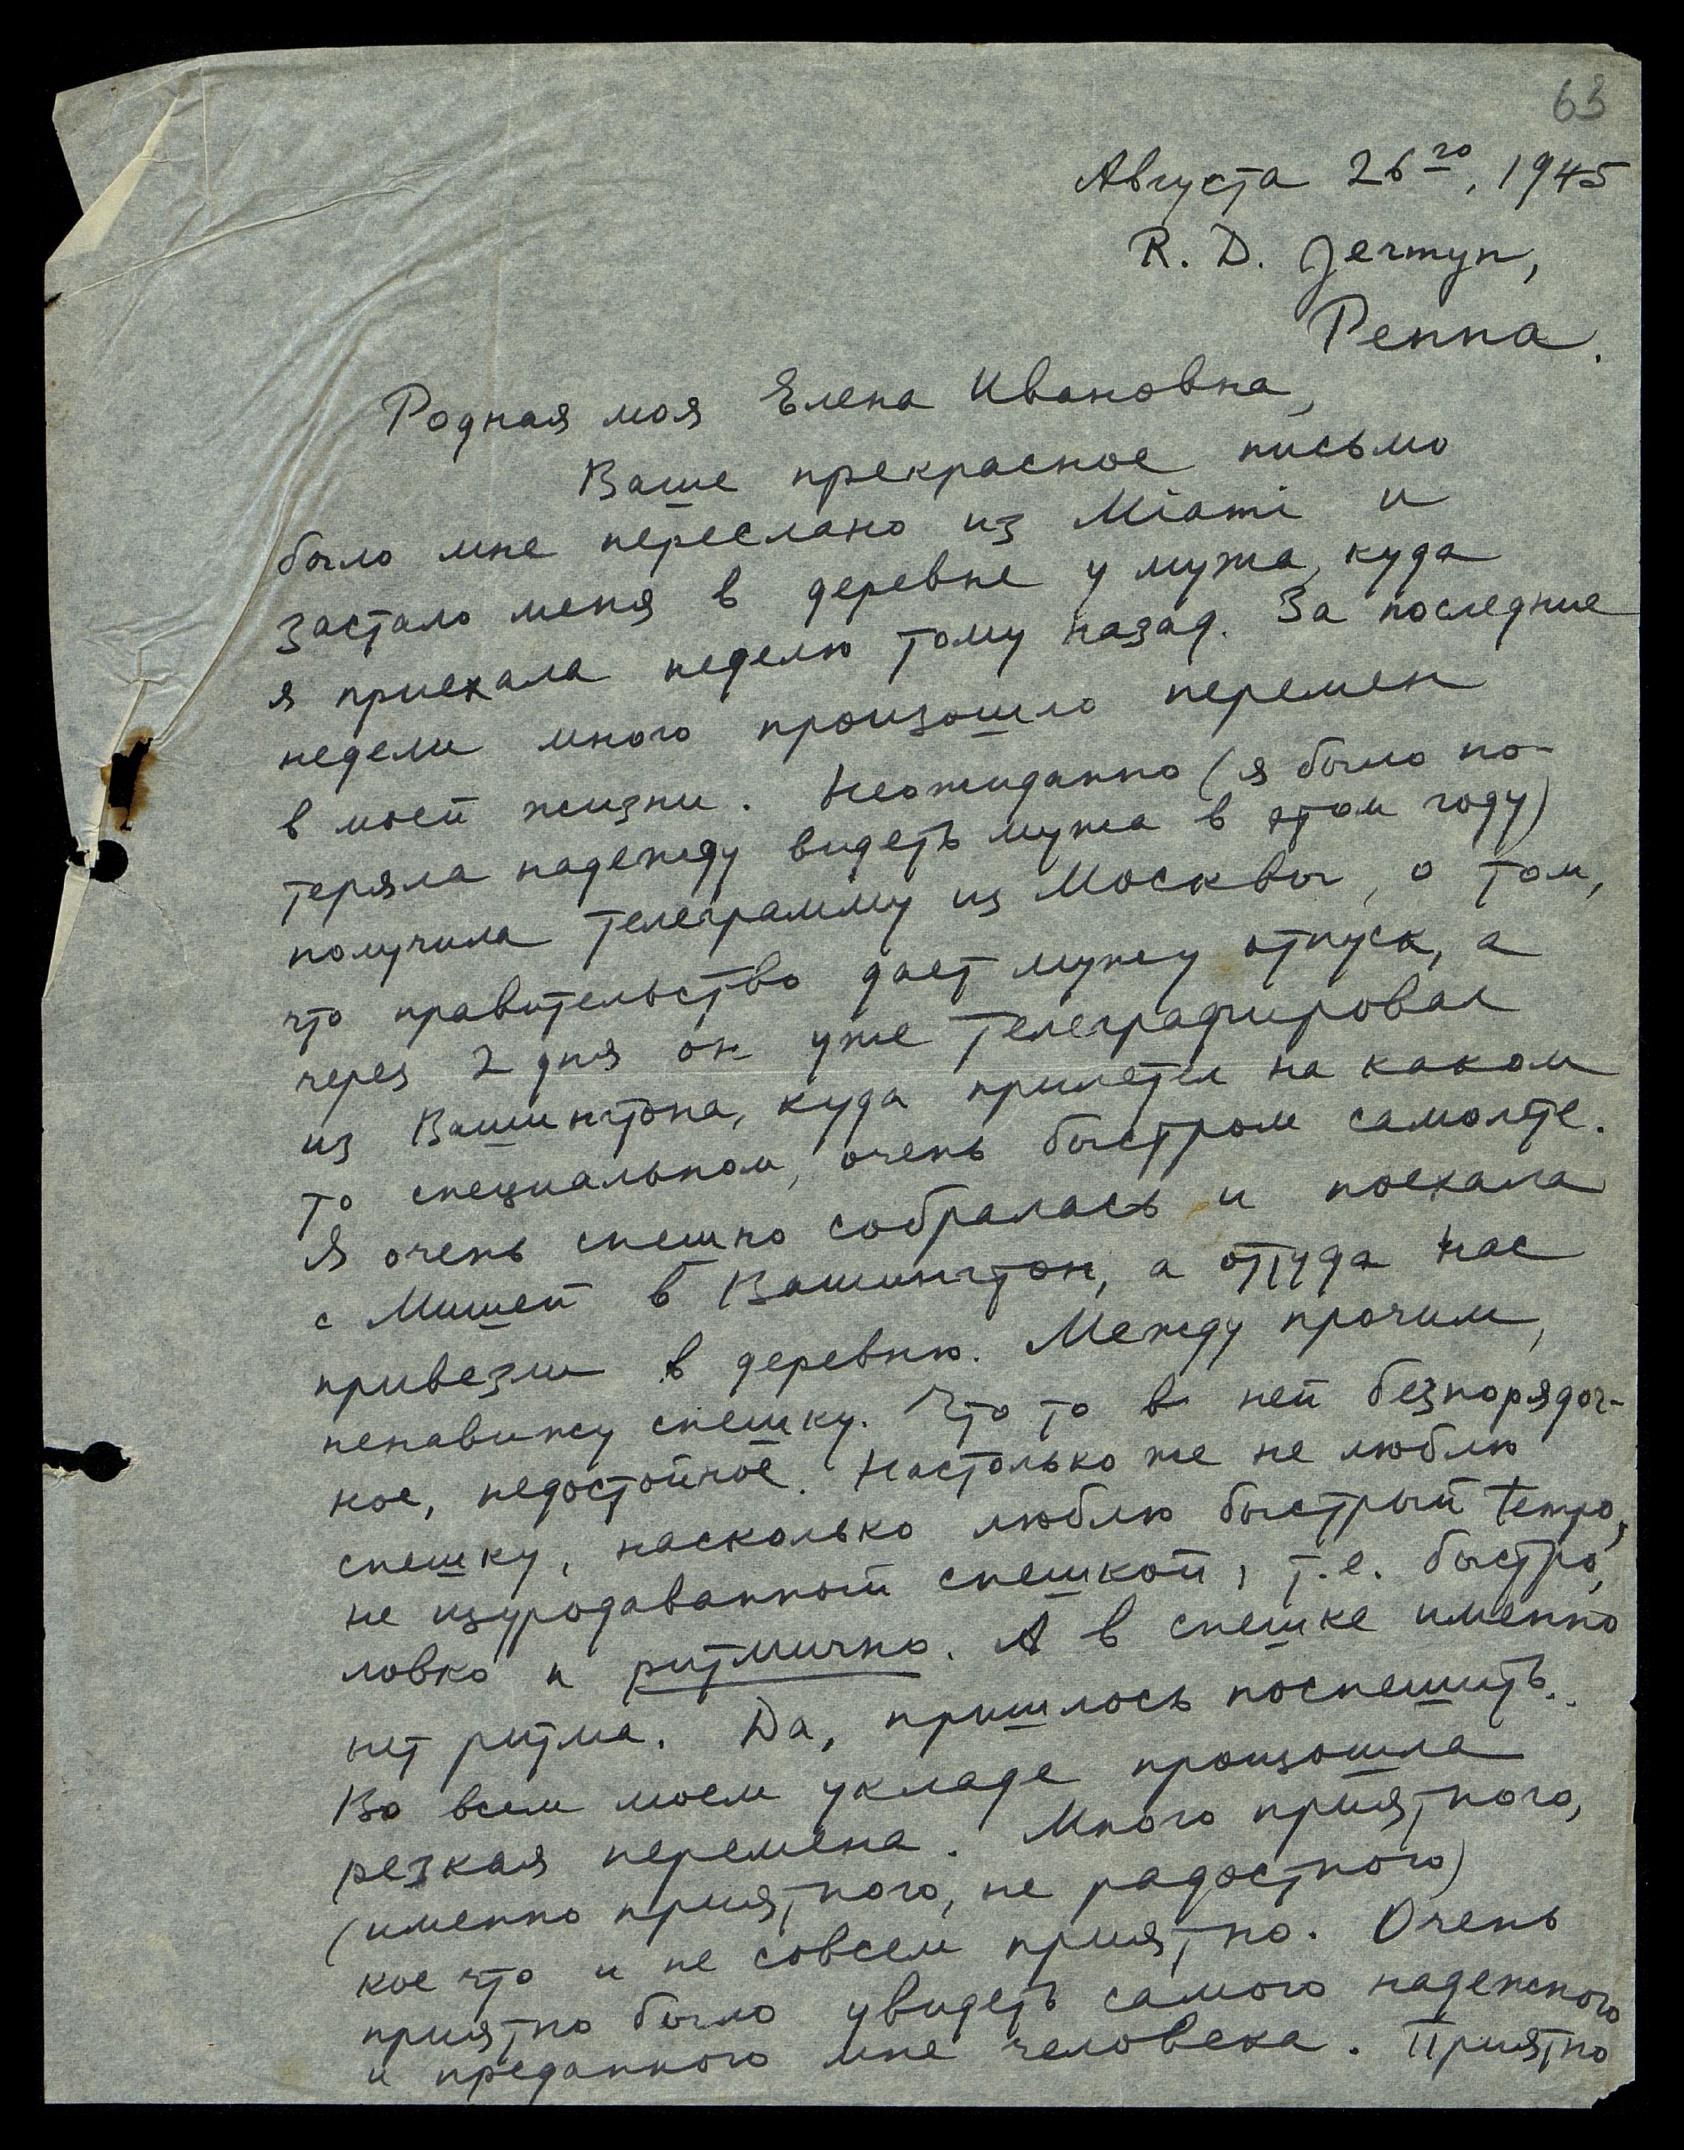 63
Августа 26го, 1945
R. D. Jermyn,
Penna.
Родная моя Елена Ивановна,
Ваше прекрасное письмо
было мне переслано из Miami и
застало меня в деревне у мужа, куда
я приехала неделю тому назад. За последние
недели много произошло перемен
в моей жизни. Неожиданно (я было по-
теряла надежду видеть мужа в этом году)
получила телеграмму из Москвы, о том,
что правительство дает мужу отпуск, а
через 2 дня он уже телеграфировал
из Вашингтона, куда прилетел на каком
то специальном, очень быстром самолете.
Я очень спешно собралась и поехала
с Мишей в Вашингтон, а оттуда нас
привезли в деревню. Между прочим,
ненавижу спешку. Что то в ней безпорядоч-
ное, недостойное. Настолько же не люблю
спешку, насколько люблю быстрый tempo,
не изуродаванный спешкой, т.е. быстро,
ловко и ритмично. А в спешке именно
нет ритма. Да, пришлось поспешить..
Во всем моем укладе произошла
резкая перемена. Много приятного,
(именно приятного, не радостного)
кое что и не совсем приятно. Очень
приятно было увидеть самого надежного
и преданного мне человека. Приятно